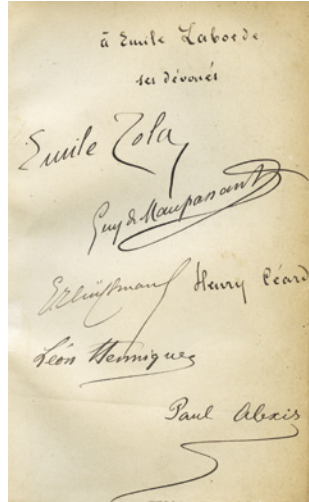 à Emile Laborde
ses dévoués
Emile Zola
Guy de Maupassant
Henry Céard
Léon Hennique
Paul Alexis